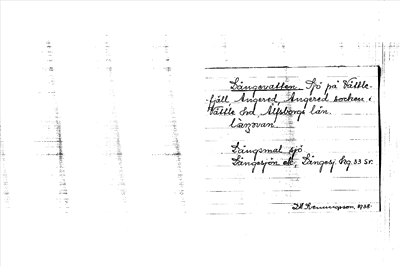 Långevatten Sjö på Vättle-
fjäll Angered, Angered socken i
Vättle hd, Älfsborgs län.
långevan
Långsmal sjö
Långesjön etc, Långesj Reg. 33 Sr.